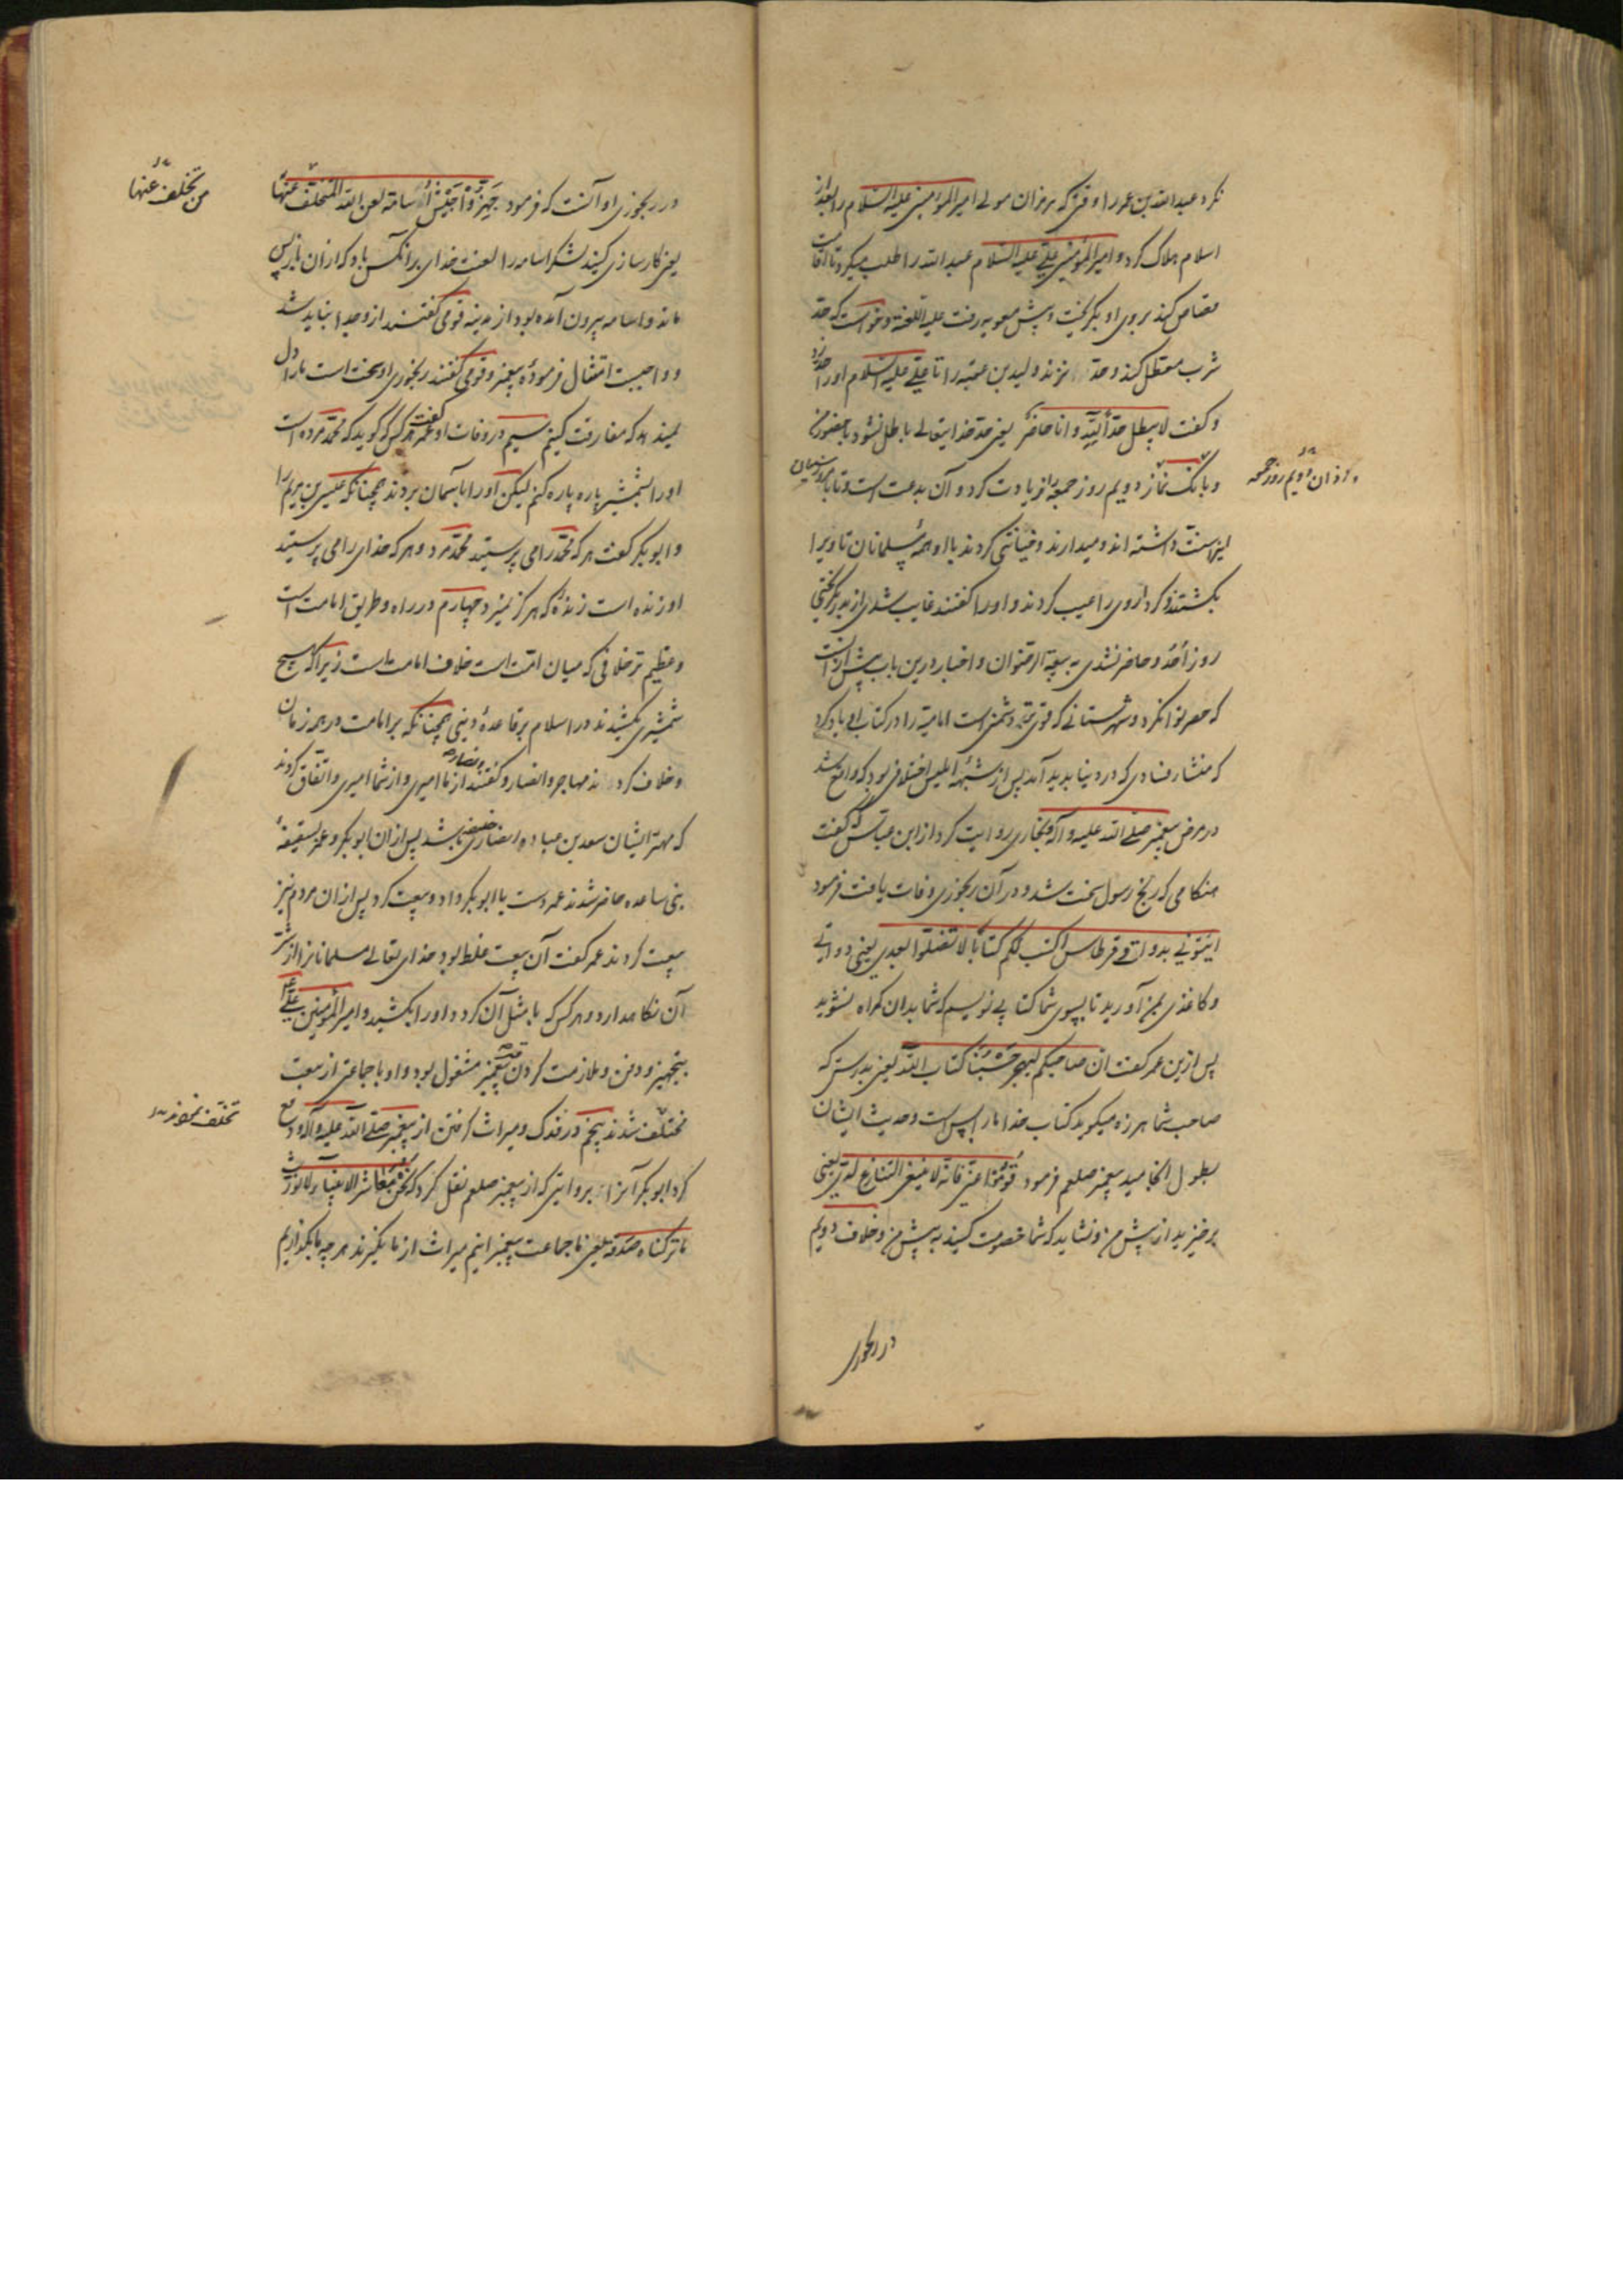 نکرد عبدالله بن عمر را وقتی که هرمزان مولی امیرالمؤمنین علیه السلام را بعد از
اسلام هلاک کرد و امیرالمؤمنین علی علیه السلام عبدالله را طلب میکرد تا اقامت
قصاص کند بروی او بگریخت و پیش معویه رفت علیه اللعنة و خواست که حد
شرب معطل کند و حد نزند ولید بن عقبه را تا علی علیه السلام او را حد زد
و گفت لا یبطل حد الله و انا حاضر یعنی حد خدایتعالی باطل نشود با حضور من
و بانگ نماز دویم روز جمعه را زیادت کرد و آن بدعت است و تا بامروز سنیان
اینرا سنت داشته اند و میدارند و خیانتی کردند با او همه مسلمانان تا ویرا
بکشتند و کردار وی را عیب کردند و او را گفتند غایب شدی از بدر و بگریختی
روز احد و حاضر نشدی به بیعة الرضوان و اخبار درین باب بیش از آنست
که حصر توان کرد و شهرستانی که قوی تر دشمن است امامیه را در کتاب او یاد کرد
که منشاء فسادی که در دنیا پدید آمد پس از شبهه ابلیس اختلافی بود که واقع شد
در مرض پیغمبر صلی الله علیه و آله و بخاری روایت کرد از ابن عباس که گفت
هنگامی که رنج رسول سخت شد و در آن رنجوری وفات یافت فرمود
ایتونی بدواة و قرطاس اکتب لکم کتابا لا تضلوا بعدی یعنی دواتی
و کاغذی بمن آورید تا بسوی شما کتابی نویسم که شما بدان گمراه نشوید
پس ازین عمر گفت ان صاحبکم لیهجر حسبنا کتاب الله یعنی بدرستی که
صاحب شما هرزه میگوید کتاب خدا ما را بس است و حدیث ایشان
بطول انجامید پیغمبر صلعم فرمود قوموا عنی فانه لا ینبغی التنازع لدی یعنی
برخیزید از پیش من و نشاید که شما خصومت کنید به پیش من و خلاف دویم
در رنجوری
و اذان دویم روز جمعه
در رنجوری او آنست که فرمود جهزوا جیش اسامة لعن الله المتخلف عنها
یعنی کارسازی کنید لشکر اسامه را لعنت خدای بر آنکس باد که از آن باز پس
ماند و اسامه بیرون آمده بود از مدینه قومی گفتند از وجدا نباید شد
و واجبست امتثال فرموده پیغمبر و قومی گفتند رنجوری او سخت است ما را دل
نمیدهد که مفارقت کنیم سیم در وفات او عمر گفت هر کس که گوید که محمد مرده است
او را بشمشیر پاره پاره کنم لیکن او را بآسمان بردند چنانکه عیسی بن مریم را
و ابوبکر گفت هر که محمد را می پرستید محمد مرد و هر که خدای را می پرستید
او زنده است زنده که هرگز نمیرد چهارم در راه و طریق امامت است
و عظیم تر خلافی که میان امت است خلاف امامت است زیرا که هیچ
شمشیری نکشیدند در اسلام بر قاعده دینی چنانکه بر امامت در هر زمان
و خلاف کردند مهاجر و انصار و گفتند انصار از ما امیری و از شما امیری و اتفاق کردند
که مهتر ایشان سعد بن عباده انصاری خلیفه باشد پس از آن ابوبکر و عمر بسقیفه
بنی ساعده حاضر شدند عمر دست با ابوبکر داد و بیعت کرد پس از آن مردم نیز
بیعت کردند عمر گفت آن بیعت غلط بود خدای تعالی مسلمانان را از شر
آن نگاهدارد و هر کس که با مثل آن کردد او را بکشید و امیرالمؤمنین علی
بتجهیز و دفن و ملازمت کردن پیغمبر مشغول بود و او با جماعتی از بیعت
متخلف شدند پنجم در فدک و میراث گرفتن از پیغمبر صلی الله علیه و آله و دفع
کرد ابوبکر آنرا بروایتی که از پیغمبر صلعم نقل کرد که نحن معاشر الانبیاء لا نورث
ما ترکناه صدقة یعنی ما جماعت پیغمبرانیم میراث از ما نگیرند هر چه ما بگذاریم
من تخلف عنها
تخلف نمودند